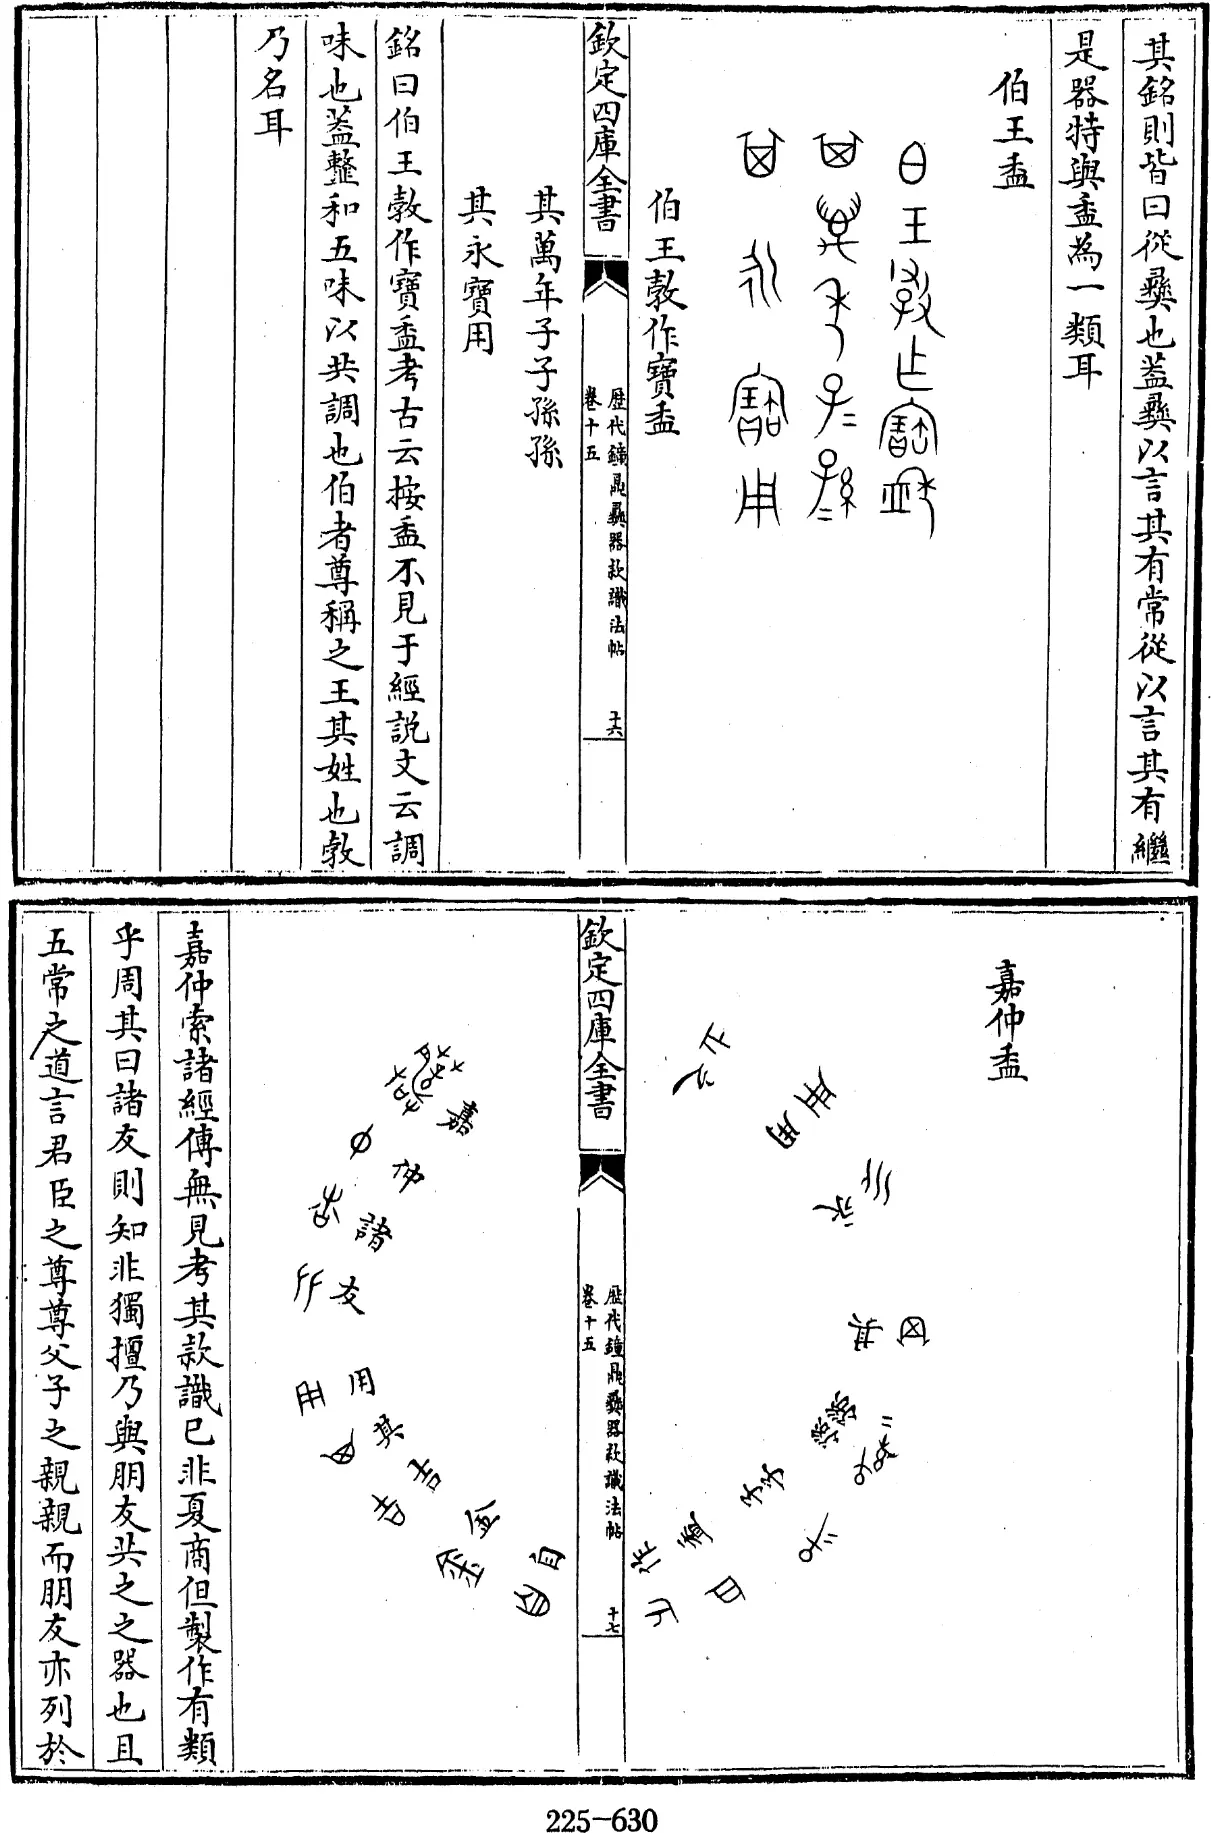 其銘則皆曰從彞也葢彞以言其有常從以言其有繼
是器特與盉為一類耳
伯王盉
伯王㝅作寶盉
欽定四庫全書
歴代鐘鼎彞器款識法帖
卷十五
十六
其萬年子子孫孫
其永寶用
銘曰伯王㝅作寶盉考古云按盉不見于經說文云調
味也葢整和五味以共調也伯者尊稱之王其姓也㝅
乃名耳
嘉仲盉
欽定四庫全書
歴代鐘鼎彞器款識法帖
卷十五
十七
嘉仲諸友用其吉金自作盉子子孫孫其永用之
嘉仲索諸經傳無見考其款識已非夏商但製作有類
乎周其曰諸友則知非獨擅乃與朋友共之之器也且
五常之道言君臣之尊尊父子之親親而朋友亦列於
225-630